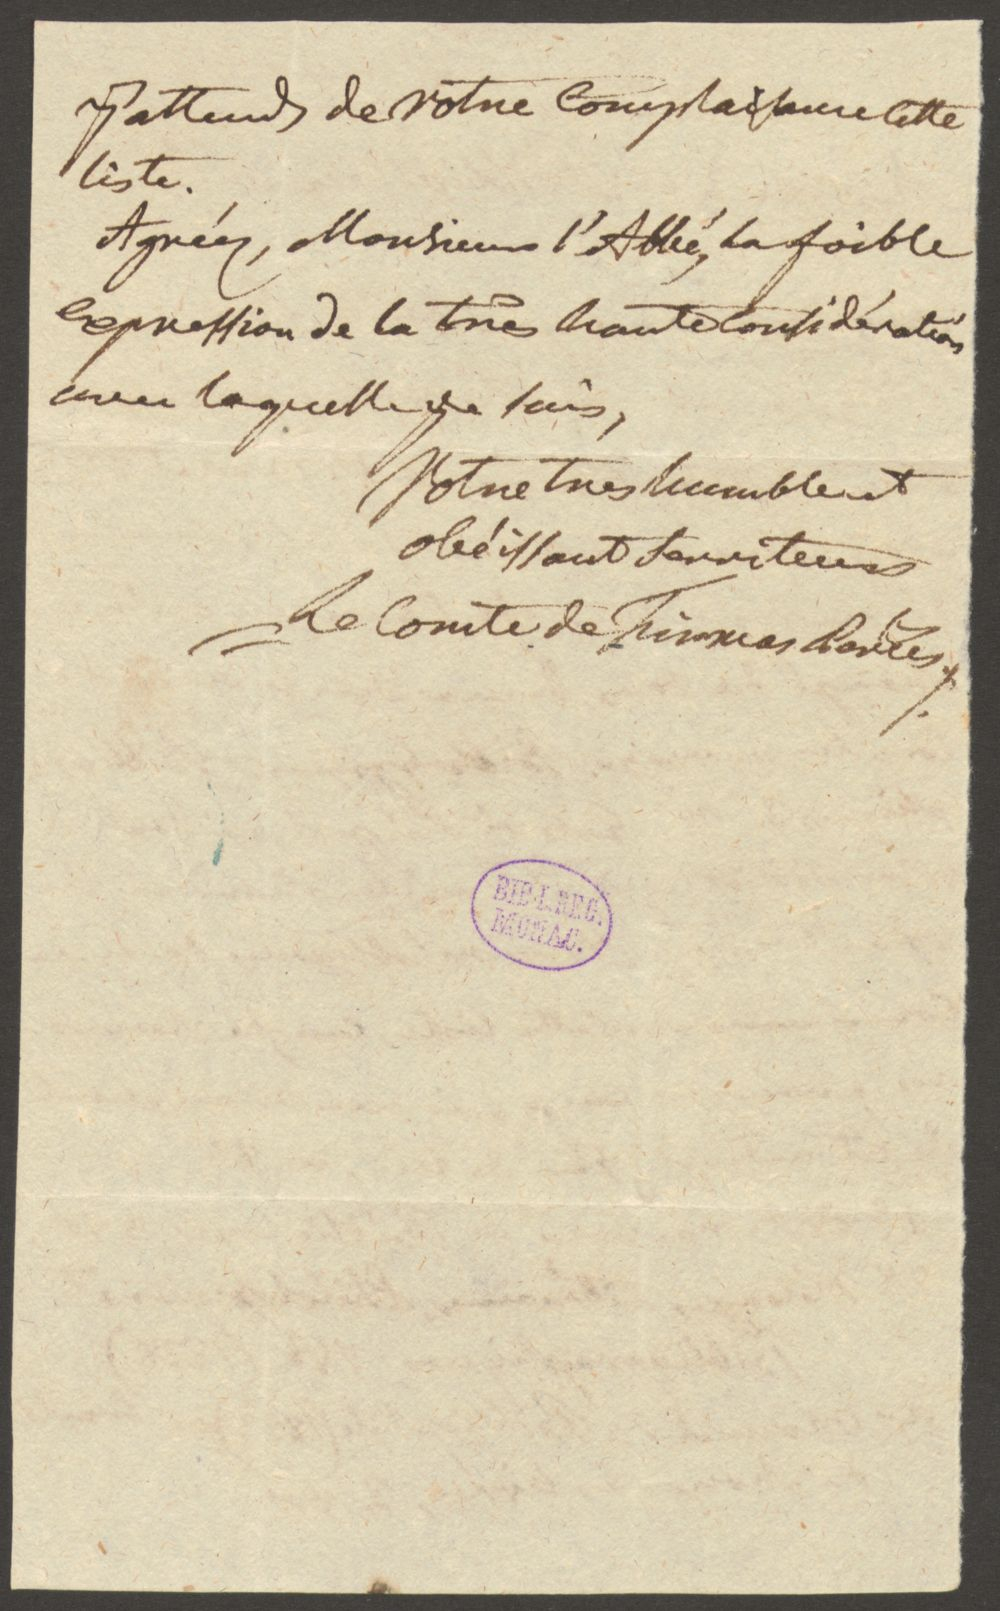 J'attends de votre Complaisance Cette
liste.
Agréez, Monsieur l'Abbé, la foible
expression de la très haute Considération
avec laquelle je suis,
Votre très humble et
obéissant Serviteur
Le Comte de
BIBL. REG.
MONAC.